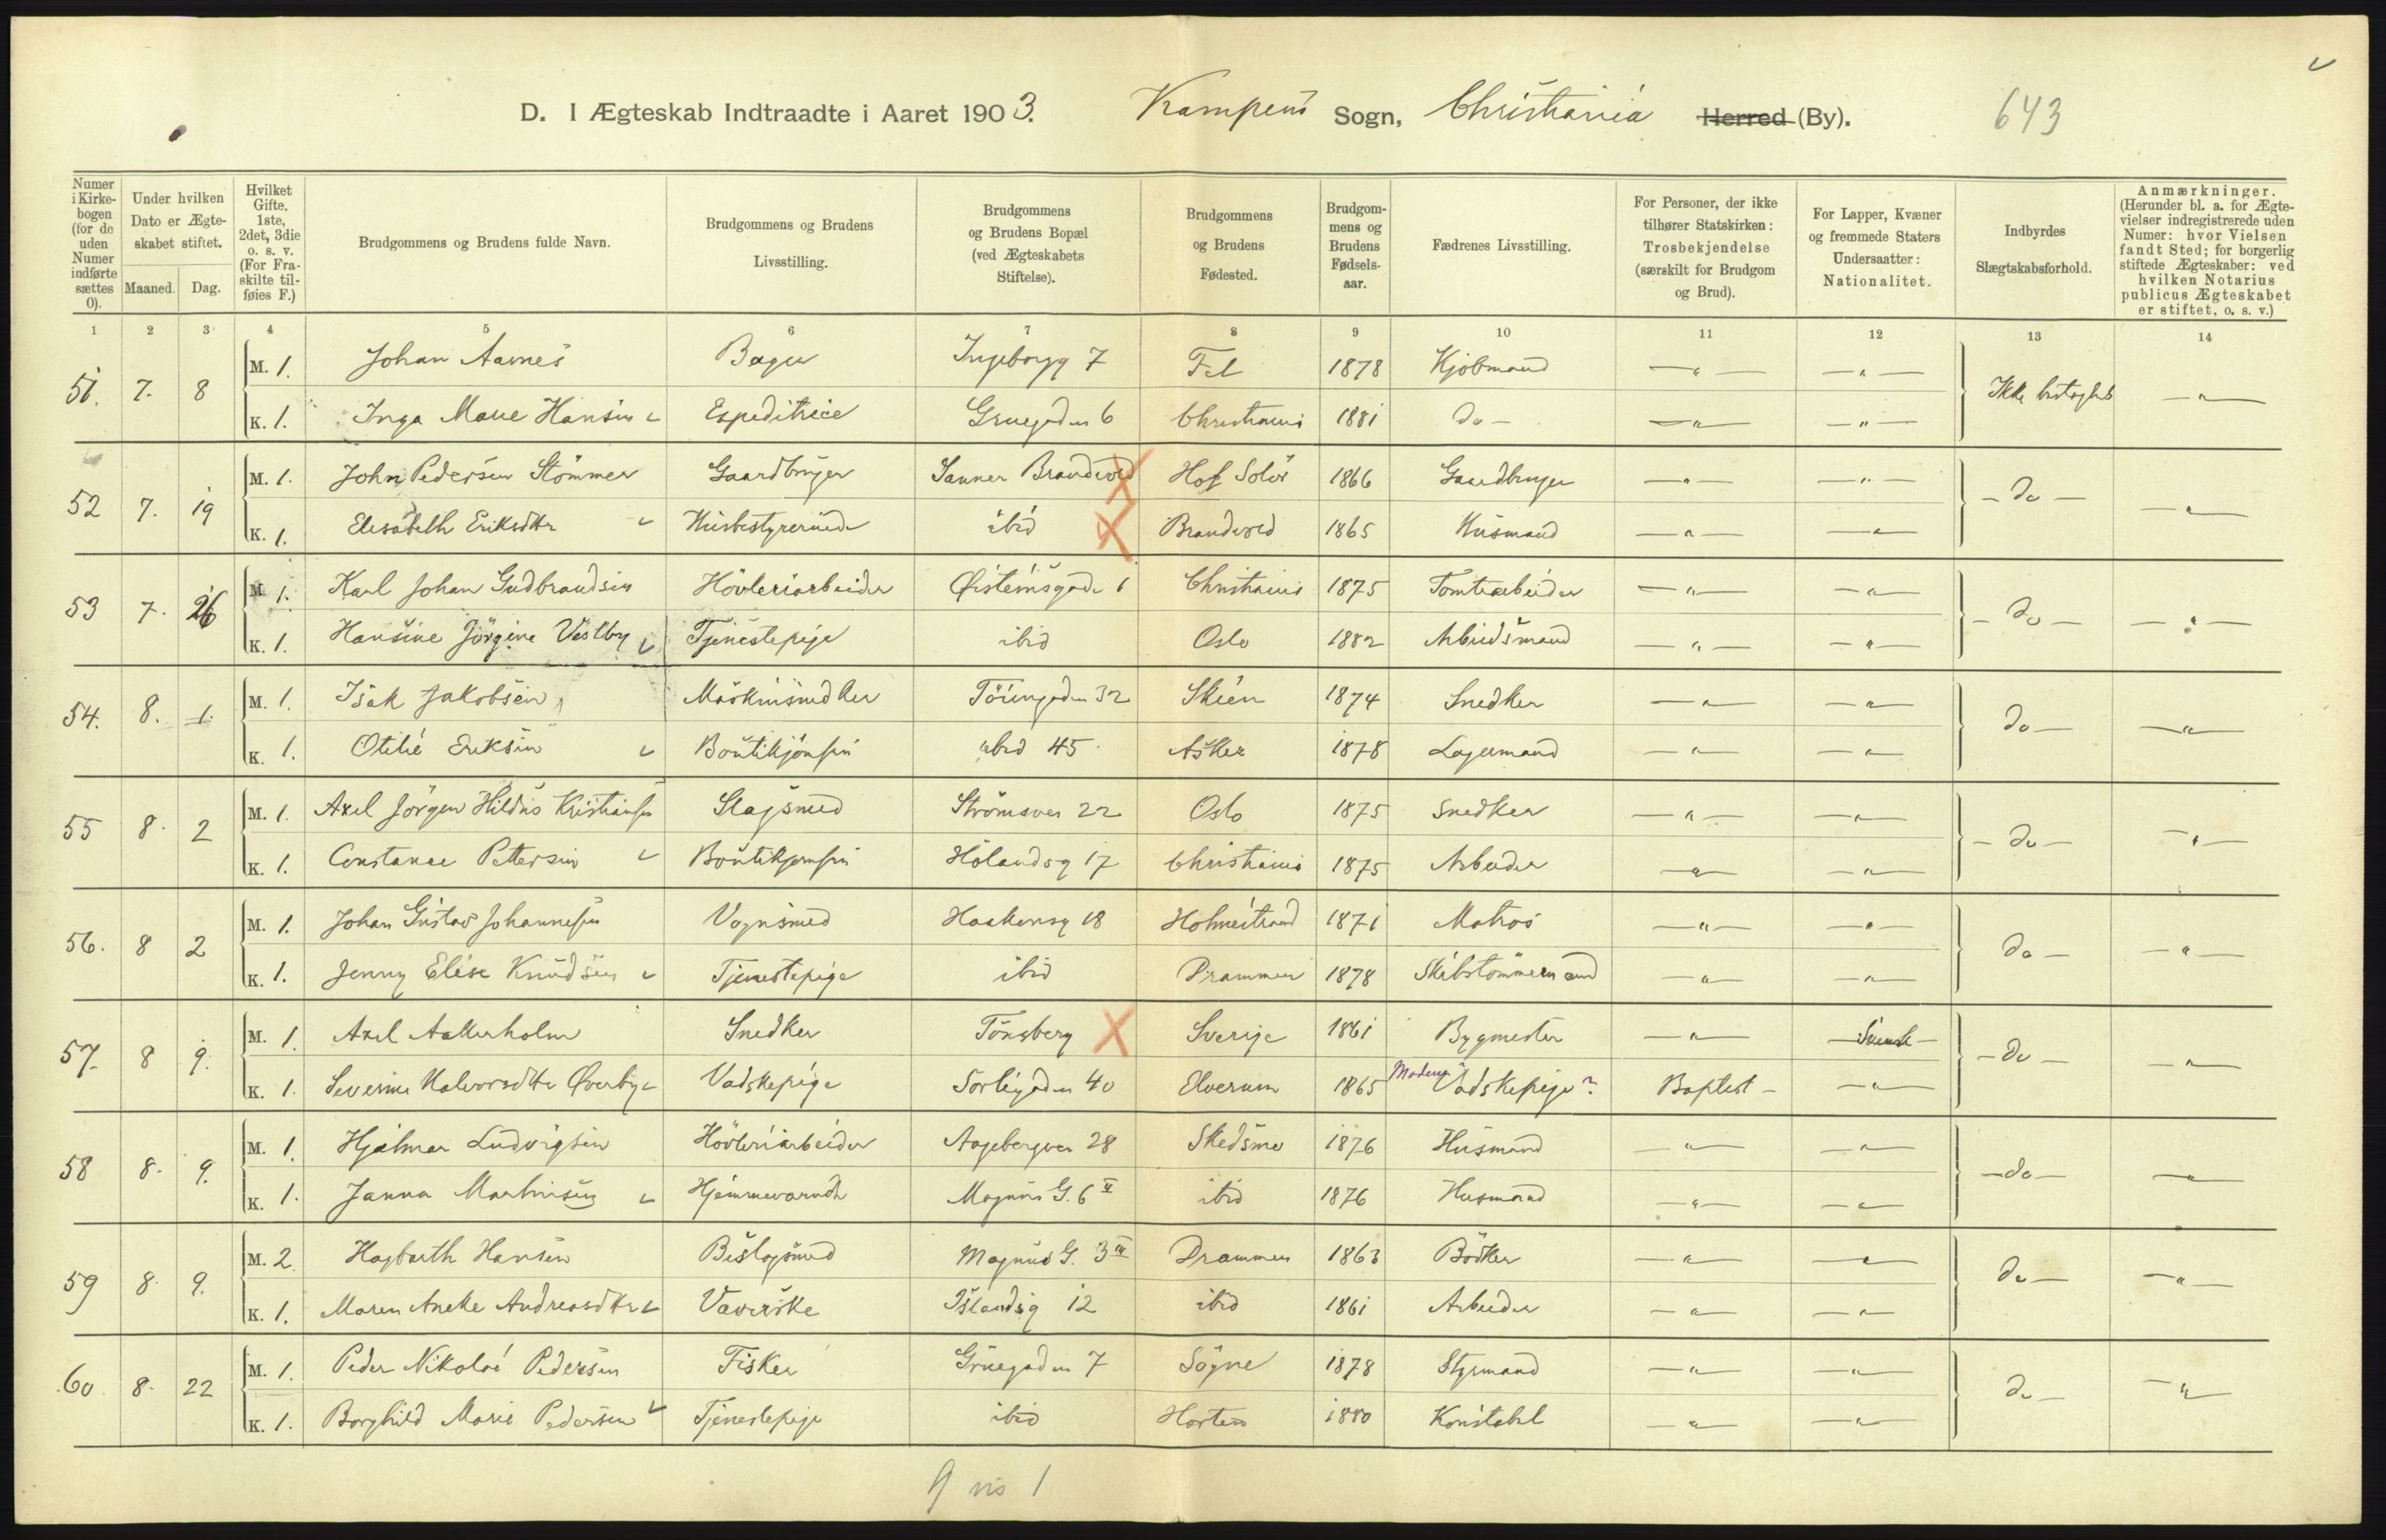 D. I Ægteskab Indtraadte i Aaret 1903. Kampens Sogn, Christiania Herred (By). 643
Numer i Kirkebogen (for de uden Numer indførte sættes 0). Under hvilken Dato er Ægteskabet stiftet. Maaned. Dag. Hvilket Gifte. 1ste, 2det, 3die o. s. v. (For Fraskilte tilføies F.) Brudgommens og Brudens fulde Navn. Brudgommens og Brudens Livsstilling. Brudgommens og Brudens Bopæl (ved Ægteskabets Stiftelse). Brudgommens og Brudens Fødested. Brudgommens og Brudens Fødselsaar. Fædrenes Livsstilling. For Personer, der ikke tilhører Statskirken: Trosbekjendelse (særskilt for Brudgom og Brud). For Lapper, Kvæner og fremmede Staters Undersaatter: Nationalitet. Indbyrdes Slægtskabsforhold. Anmærkninger. (Herunder bl. a. for Ægtevielser indregistrerede uden Numer: hvor Vielsen fandt Sted; for borgerlig stiftede Ægteskaber: ved hvilken Notarius publicus Ægteskabet er stiftet, o. s. v.)
1 2 3 4 5 6 7 8 9 10 11 12 13 14
51. 7. 8 M. 1. Johan Aarnes Bager Ingeborgg 7 Fet 1878 Kjöbmand — " — — " — Ikke beslegtet — " —
K. 1. Inga Marie Hansen Expeditrice Gruegaden 6 Christiania 1881 do — — " — — " —
52 7. 19 M. 1. John Pedersen Stömmer Gaardbruger Sanner Brandvold Hof Solör 1866 Gaardbruger — " — — " — — do — — " —
K. 1. Elesabeth Eriksdtr Husbestyrerinde ibid Brandvold 1865 Husmand — " — — " —
53 7. 26 M. 1. Karl Johan Gudbrandsen Hövleriarbeider Øisteinsgade 1 Christiania 1875 Tomtearbeider — " — — " — — do — — " —
K. 1. Hansine Jörgine Vestby Tjenestepige ibid Oslo 1882 Arbeidsmand — " — — " —
54. 8. 1. M. 1. Isak Jakobsen Maskinsnedker Töiengaden 32 Skien 1874 Snedker — " — — " — do — — " —
K. 1. Otilie Eriksen Boutikjomfru ibid 45 Asker 1878 Lagermand — " — — " —
55 8. 2 M. 1. Axel Jörgen Kristiansen Slagsmed Strömsvei 22 Oslo 1875 Snedker — " — — " — — do — — " —
K. 1. Constance Pettersen Boutikjomfru Hölandsg 17 Christiania 1875 Arbeider — " — — " —
56. 8 2 M. 1. Johan Gustav Johannesen Vognsmed Haakonsg 18 Holmestrand 1871 Matros — " — — " — do — — " —
K. 1. Jenny Elise Knudsen Tjenestepige ibid Drammen 1878 Skibstömmermand — " — — " —
57. 8 9. M. 1. Axel Aakerholm Snedker Tönsberg Sverige 1861 Bygmester — " — Svensk — do — — " —
K. 1. Severine Halvorsdtr Øverby Vadskepige Sorligaden 40 Elverum 1865 Moderen Vadskepige? Baptist — — " —
58 8. 9. M. 1. Hjalmar Ludvigsen Hövleriarbeider Aagebergvei 28 Skedsmo 1876 Husmand — " — — " — — do — — " —
K. 1. Janna Martinsen Hjemmeværende Magnus G. 6 II ibid 1876 Husmand — " — — " —
59 8. 9. M. 2. Hagbarth Hansen Beslagsmed Magnus G. 3 III Drammen 1863 Bödker — " — — " — do — — " —
K. 1. Maren Aneke Andreasdtr Væverske Islandsg 12 ibid 1861 Arbeider — " — — " —
60. 8. 22 M. 1. Peder Nikolai Pedersen Fisker Gruegaden 7 Sögne 1878 Styrmand — " — — " — do — — " —
K. 1. Borghild Marie Pedersen Tjenestepige ibid Horten 1880 Konstabel — " — — " —